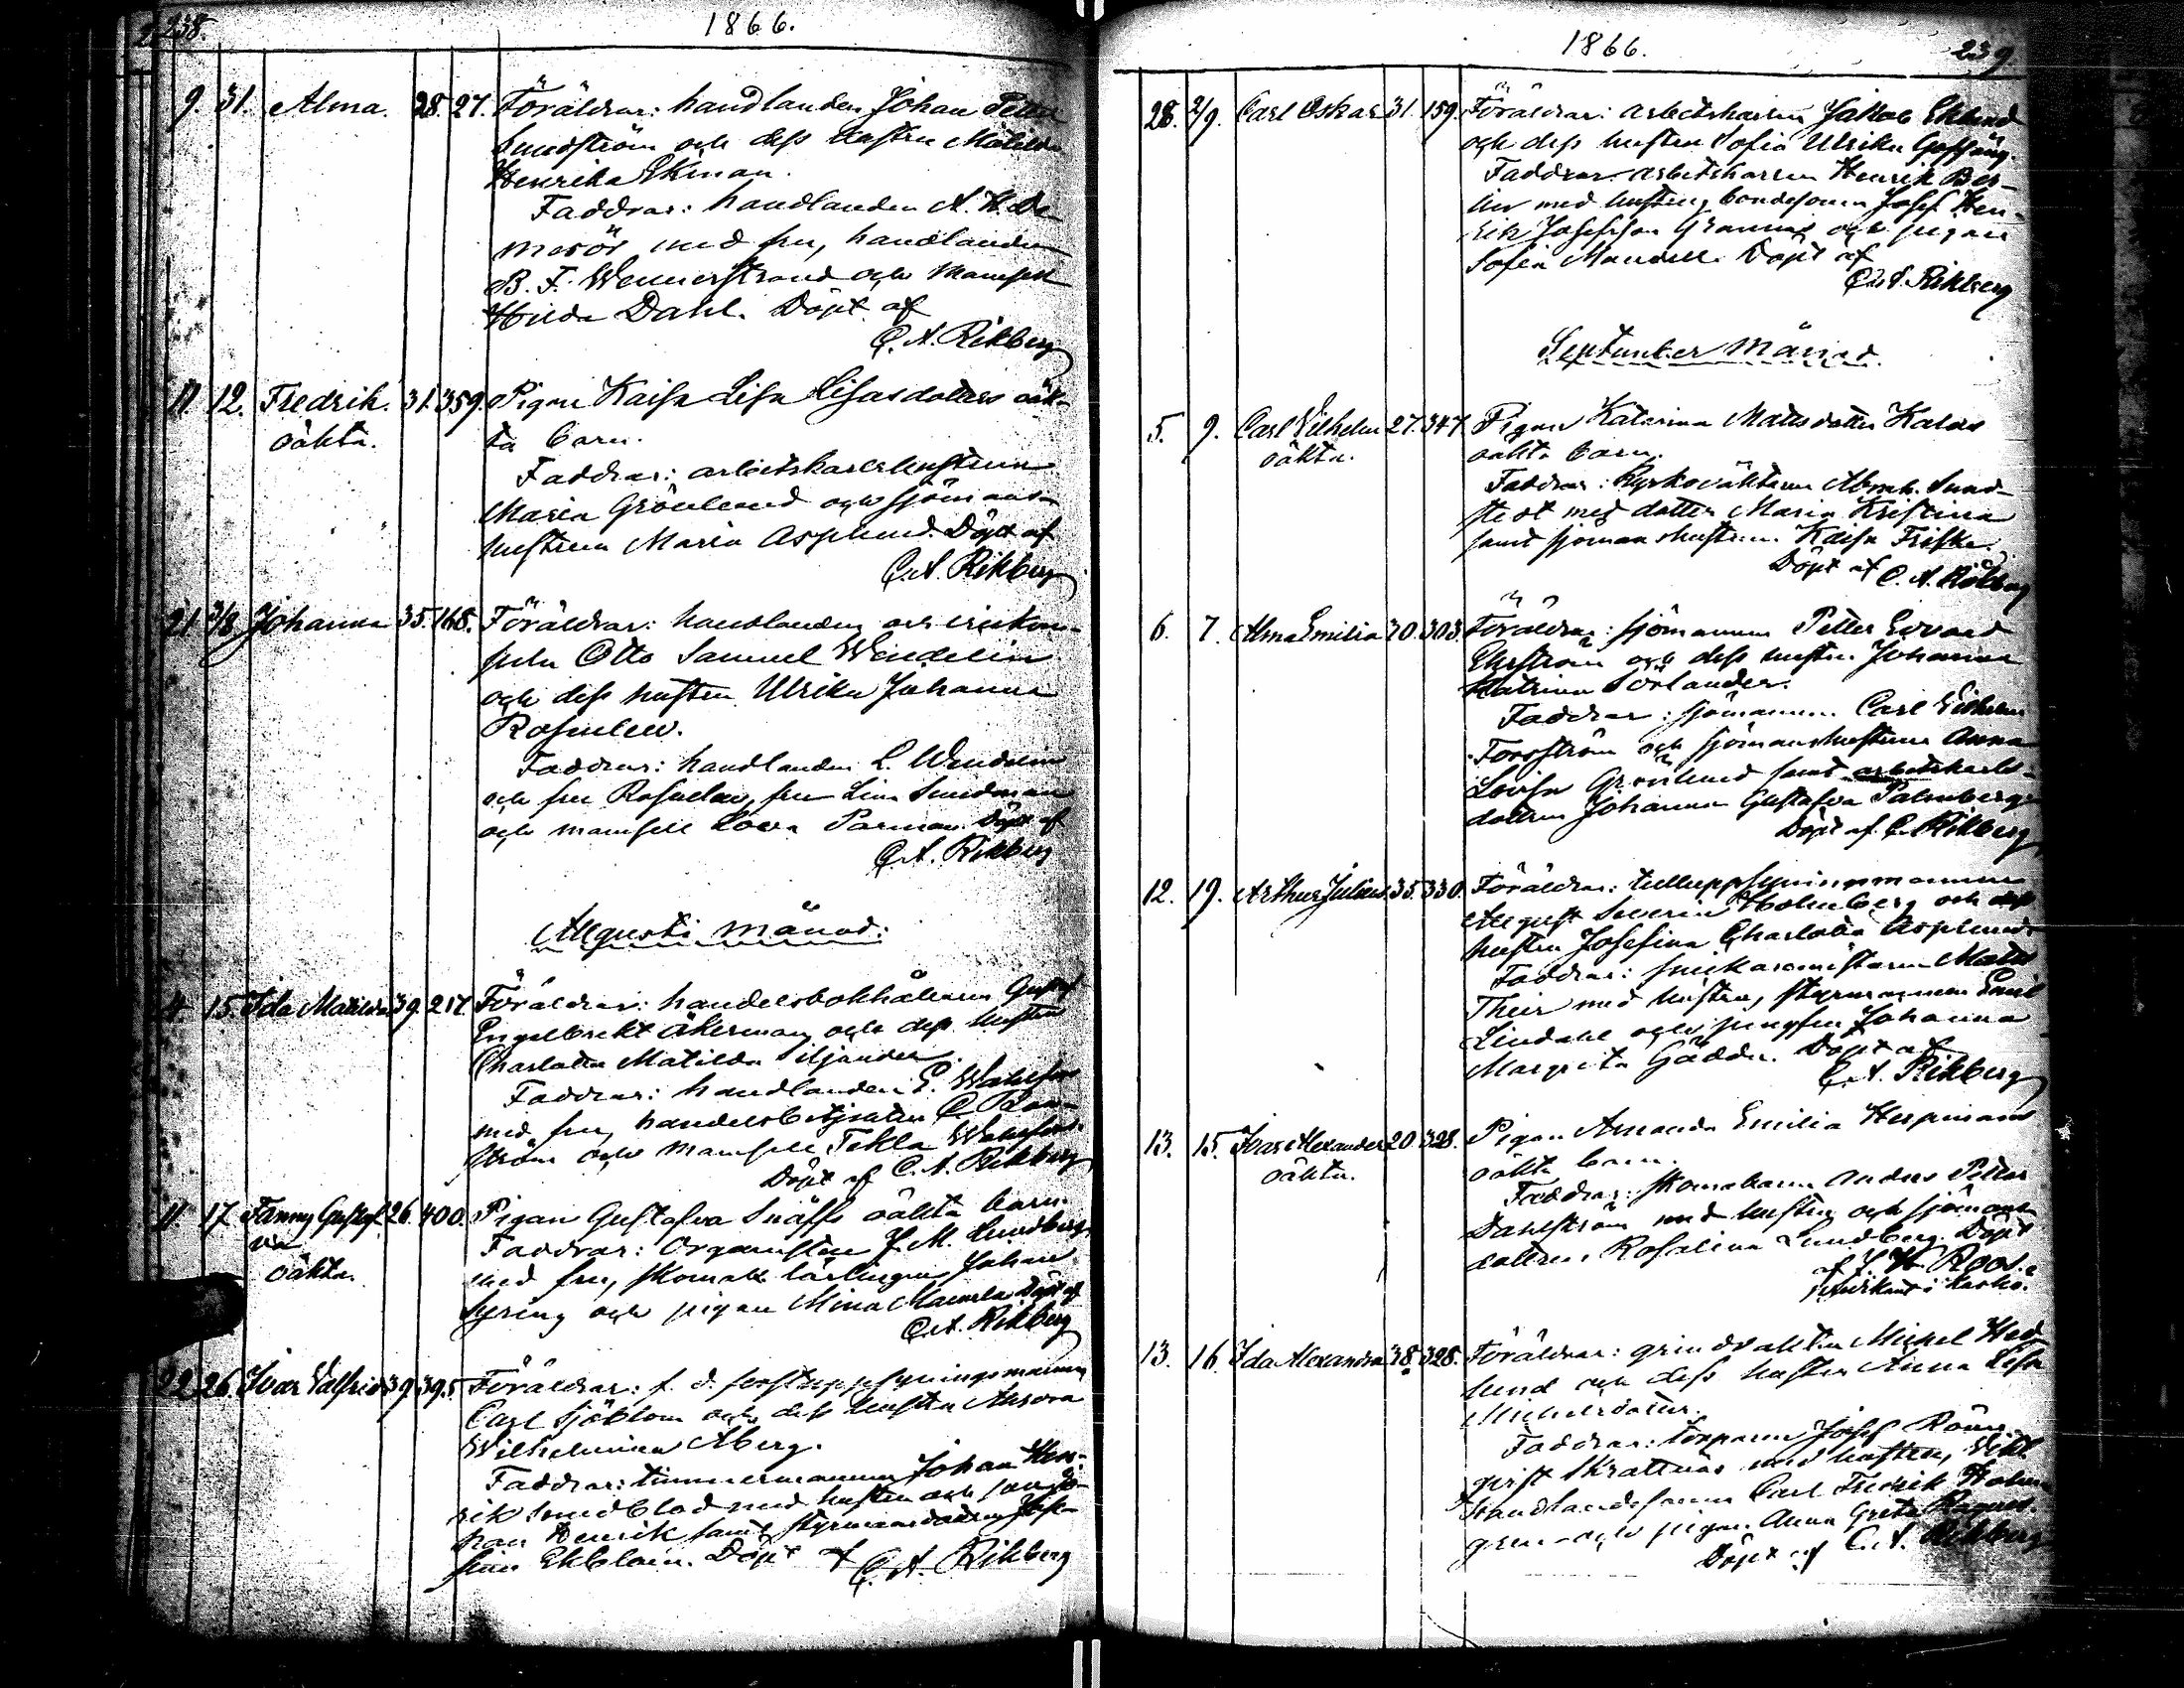 238.
1866.
9. 31. Alma. 28. 27. Föräldrar: handlanden Johan Petter
Sundström och dess hustru Matilda
Henrika Ekman.
Faddrar: handlanden A. H. De-
mosör med fru, handlanden
B. F. Wennerstrand och mamsell
Hilda Dahl. Döpt af
C. A. Rikberg
11. 12. Fredrik. 31. 359. Pigan Kaisa Lisa Lisasdotters oäk-
oäkta. ta barn.
Faddrar: arbetskarlshustrun
Maria Grönlund och sjömans-
hustrun Maria Asplund. Döpt af
C. A. Rikberg
21. 3/8 Johanna 35. 168. Föräldrar: handlanden och
Otto Samuel Wendelin
och dess hustru Ulrika Johanna
Rosenlew.
Faddrar: handlanden L. Wendelin
och fru Rosenlew, fru Lina Sundman
och mamsell Lova Parman. Döpt af
C. A. Rikberg
Augusti månad:
4. 15. Ida Matilda 39. 217. Föräldrar: handelsbokhållaren Gustaf
Engelbrekt Åkerman och dess hustru
Charlotta Matilda Siljander.
Faddrar: handlanden E. Wahlfors
med fru, handelsbetjenten C.
ström och mamsell Tekla
Döpt af C. A. Rikberg
11. 17. Fanny Gustaf- 26. 400. Pigan Gustafva Snäffs oäkta barn.
va Faddrar: Organisten J. M. Lundberg
oäkta. med fru, skomak. lärlingen Johan
och pigan Mina Döpt af
C. A. Rikberg
22. 26. Ivar Valfrid 39. 395. Föräldrar: f. d. forstuppsyningsmannen
Carl Sjöblom och dess hustru Aurora
Wilhelmina Åberg.
Faddrar: timmermannen Johan Hen-
rik Smedblad med hustru och
Henrik samt styrmansdottren Jose-
fina Ekblom. Döpt af C. A. Rikberg
1866. 239.
28. 2/9. Carl Oskar 31. 159. Föräldrar: arbetskarlen Jakob Eklund
och dess hustru Sofia Ulrika
Faddrar: arbetskarlen Henrik Ber-
med hustru, bondesonen Josef Hen-
rik Josefsson Grannas och pigan
Sofia Mandell. Döpt af
C. A. Rikberg
September månad.
5. 9. Carl Wilhelm 27. 347. Pigan Katarina Mattsdotter Kalas
oäkta. oäkta barn.
Faddrar: Kyrkoväktaren Abrah. Sund-
stedt med dotter Maria Kristina
samt sjömanshustrun Kaisa Friska.
Döpt af C. A. Rikberg
6. 7. Alma Emilia 30. 303. Föräldrar: sjömannen Petter Edvard
Ekström och dess hustru Johanna
Katrina Sörlander.
Faddrar: sjömannen Carl Vilhelm
Forsström och sjömanshustrun Anna
Lovisa Grönlund samt arbetskarls-
dottren Johanna Gustafva Palmberg.
Döpt af C. A. Rikberg
12. 19. Arthur Julius 35. 330. Föräldrar: tulluppsyningsmannen
August Severin Holmberg och dess
hustru Josefina Charlotta Asplund.
Faddrar: snickaremästaren Matts
Their med hustru, styrmannen Emil
Lindahl och jungfru Johanna
Margreta Gädda. Döpt af
C. A. Rikberg
13. 15. Ivar Alexander 20. 328. Pigan Amanda Emilia
oäkta. oäkta barn.
Faddrar: skomakaren Anders Petter
Dahlström med hustru och sjömans-
dottren Rosalina Lundberg. Döpt
af J. W. Roos.
predikant i Kaskö.
13. 16. Ida Alexandra 38. 328. Föräldrar: grindvakten Mickel Hed-
lund och dess hustru Anna Lisa
Mickelsdotter.
Faddrar: torparen Josef
Skrattnäs med hustru,
handlandesonen Carl Fredrik
gren och pigan Anna Greta
Döpt af C. A. Rikberg